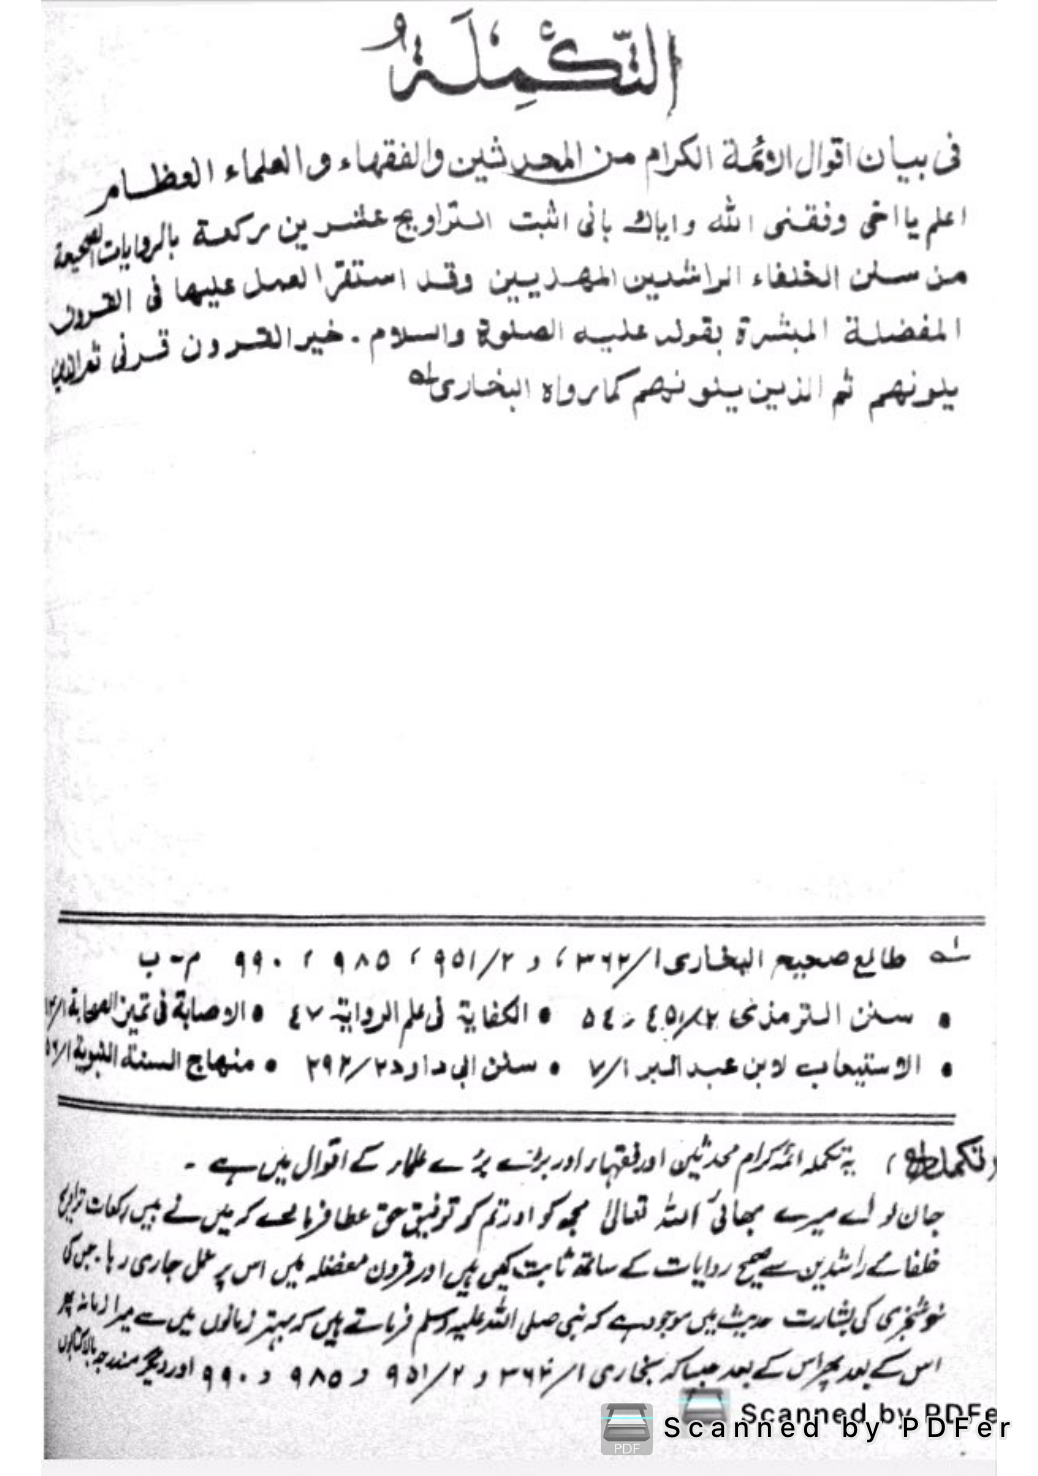 التَّكْمِلَةُ
فى بيان اقوال الائمة الكرام من المحدثين والفقهاء والعلماء العظام
اعلم يا اخى وفقنى الله واياك بانى اثبت التراويح عشرين ركعة بالروايات الصحيحة
من سنن الخلفاء الراشدين المهديين وقد استقر العمل عليها فى القرون
المفضلة المبشرة بقوله عليه الصلوة والسلام . خير القرون قرنى ثم الذين
يلونهم ثم الذين يلونهم كما رواه البخارى
طالع صحيح البخارى ١/٣٦٢، و ٢/٩٥١، ٩٨٥، ٩٩٠ م-ب
• سنن الترمذى ٢/٤٥، ٥٤ • الكفاية فى علم الرواية ٤٧ • الاصابة فى تميز الصحابة
• الاستيعاب لابن عبد البر ١/٧ • سنن ابى داود ٢/٢٩٢ • منهاج السنة النبوية
یہ تکملہ ائمہ کرام محدثین اور فقہاء اور بڑے بڑے علماء کے اقوال میں ہے ۔
جان لو اے میرے بھائی اللہ تعالیٰ مجھ کو اور تم کو توفیق حق عطا فرمائے کہ میں نے بیس رکعات تراویح
خلفائے راشدین سے صحیح روایات کے ساتھ ثابت کی ہیں اور قرون مفضلہ میں اس پر عمل جاری رہا۔ جس کی
خوشخبری کی بشارت حدیث میں موجود ہے کہ نبی صلی اللہ علیہ وسلم فرماتے ہیں کہ بہتر زمانوں میں سے میرا زمانہ پھر
اس کے بعد پھر اس کے بعد جیسا کہ بخاری ١/٣٦٢ و ٢/٩٥١ و ٩٨٥ و ٩٩٠ اور دیگر مندرجہ بالا کتابوں
Scanned by PDFer
Scanned by PDFer
PDF